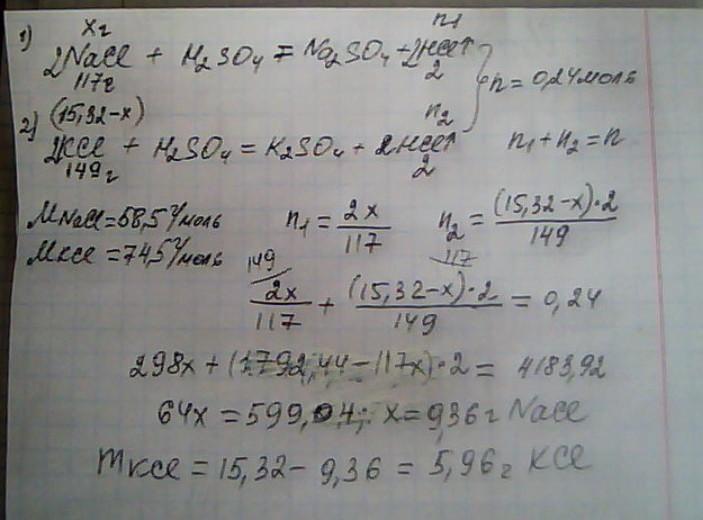 хг n₁
1) 2NaCl + H₂SO₄ = Na₂SO₄ + 2HCl↑
117г 2 n = 0,24 моль
(15,32-х) n₂
2) 2KCl + H₂SO₄ = K₂SO₄ + 2HCl↑ n₁ + n₂ = n
149г 2
MNaCl = 58,5 г/моль n₁ = 2x/117 n₂ = (15,32-x)·2/149
MKCl = 74,5 г/моль 149 117
2x/117 + (15,32-x)·2/149 = 0,24
298x + (1792,44 - 117x)·2 = 4183,92
64x = 599,04; x = 9,36 г NaCl
mKCl = 15,32 - 9,36 = 5,96 г KCl